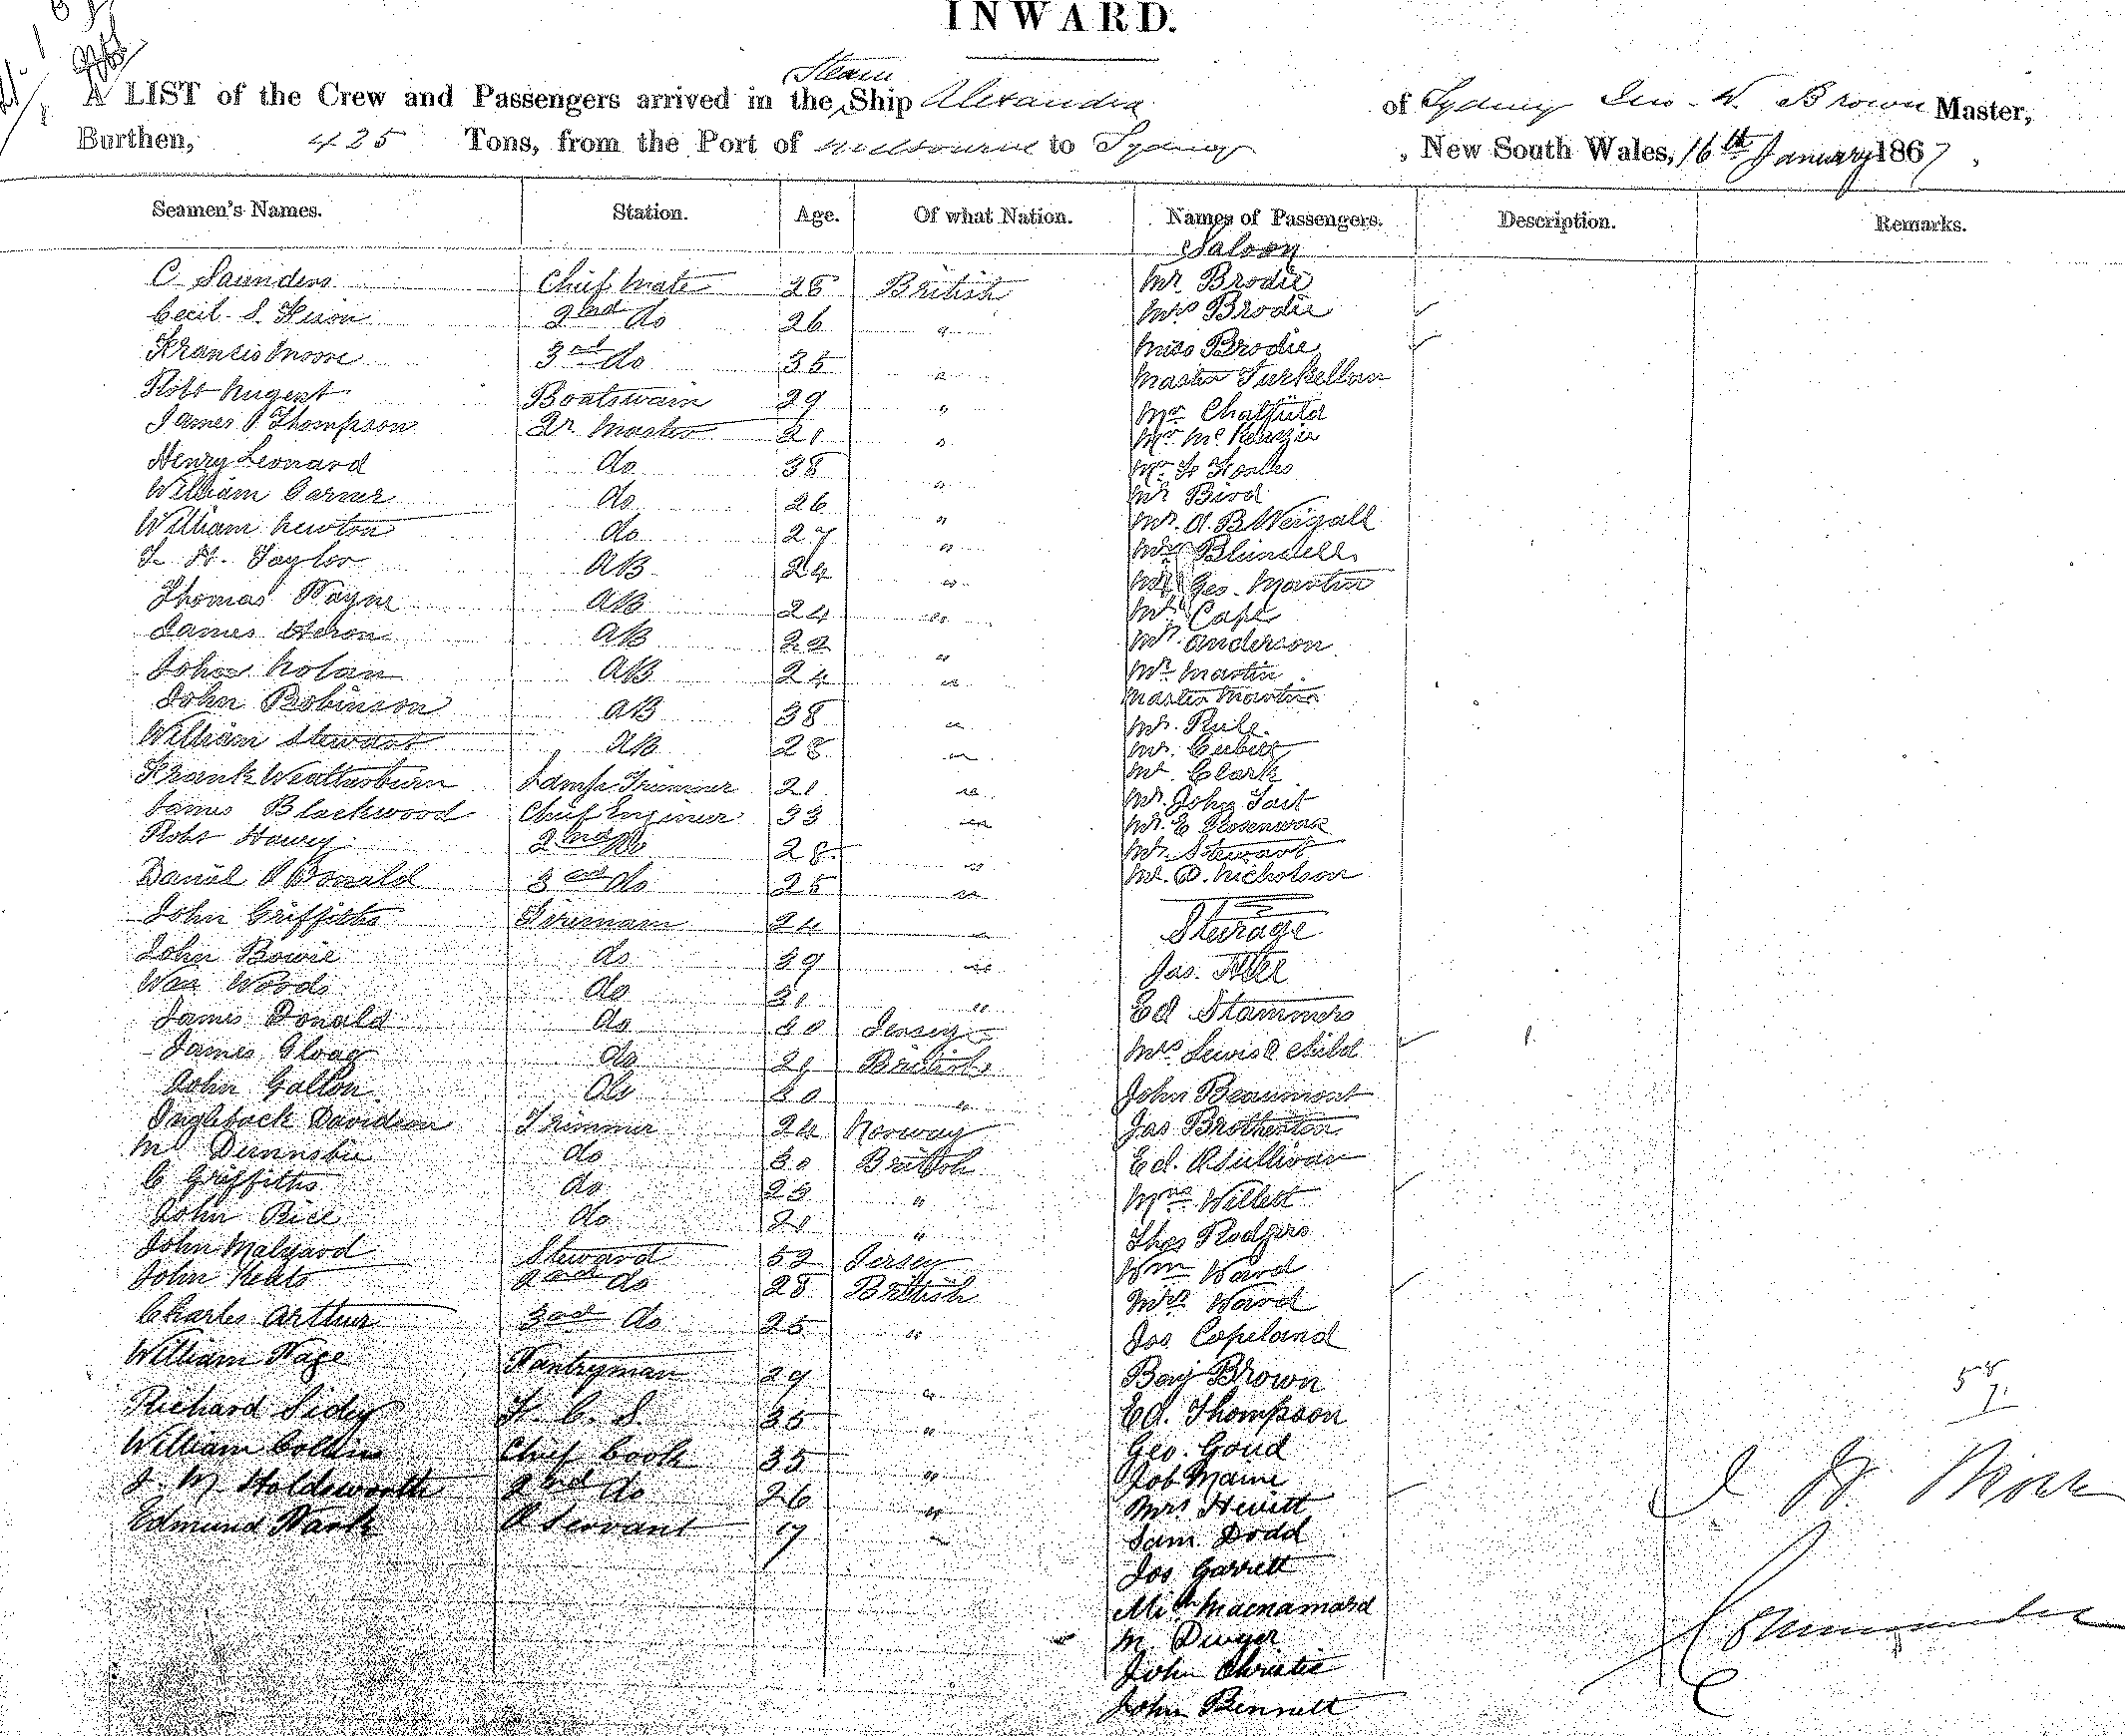 INWARD.
A LIST of the Crew and Passengers arrived in the Steam Ship Alexandra of Sydney Jno. W. Brown Master,
Burthen, 425 Tons, from the Port of Melbourne to Sydney, New South Wales, 16th January 1867,
Seamen's Names. Station. Age. Of what Nation. Names of Passengers. Description. Remarks.
Saloon
C Saunders Chief Mate 28 British Mr Brodie
Cecil S. 2nd do 26 " Mrs Brodie
Francis Moore 3rd do 35 " Miss Brodie
Robt Nugent Boatswain 29 " Master
James Thompson Qr Master 21 " Mr Chatfield
Henry Leonard do 38 " Mr McKenzie
William Garner do 26 " Mr
William Newton do 27 " Mr Bird
Taylor AB 24 " Mr. A. B. Weigall
Thomas Payne AB 24 " Blundell
James Heron AB 22 " Geo. Martin
John Nolan AB 24 " Cape
John Robinson AB 38 " Mr. Anderson
William Stewart AB 28 " Mr Martin
Master Martin
Frank Weatherburn Lamp Trimmer 21 " Mr. Rule.
James Blackwood Chief Engineer 33 " Mr.
Robt 2nd do 28 " Mr Clark
Daniel Donald 3rd do 25 " Mr. John Tait
John Griffiths Fireman 24 " Mr. E
John Bowie do 39 " Mr. Stewart
Wm Woods do 31 " Mr. D. Nicholson
Steerage
James Donald do 40 Jersey Jas.
James Gloag do 29 British Ed Stammers
John Galton do 40 " Mrs Lewis & Child
Davidson Trimmer 24 Norway John Beaumont
do 30 British Jas Brotherton
C Griffiths do 25 " Ed. O'Sullivan
John Rice do 21 " Mrs Willett
John Malzard Steward 52 Jersey Thos Rodgers
John Keats 2nd do 28 British Wm Ward
Charles Arthur 3rd do 25 " Mrs Ward
William Page Pantryman 29 " Jos Copeland
Richard Sidey F. C. S. 35 " Benj Brown
William Collins Chief Cook 35 " Ed. Thompson
J. M. Holdsworth 2nd do 26 " Geo. Goud
Edmund Servant 17 " Job
Mrs Hewitt
Sam Dodd
Jos Garrett
Mich Macnamara
M. Dwyer
John Christie
John Bennett
Commander